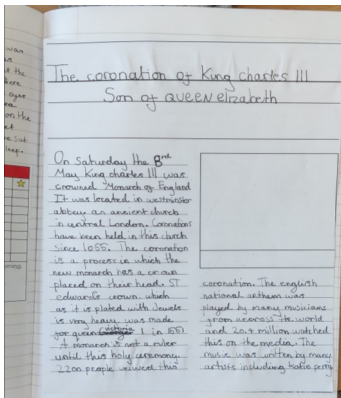 The coronation of King charles III
Son of QUEEN elizabeth
On Saturday the 8nd
May King charles III was
crowned Monarch of England
It was located in westminster
abbey an ancient church
in central London. Coronations
have been held in this church
since 1055. The coronation
is a process in which the
new monarch has a crown
placed on their head. ST
edwards crown which
as it is plated with Jewels
is very heavy was made
for queen 1 in 1661
A monarch is not a ruler
until this holy ceremony.
2200 people viewed this
coronation. The english
national anthem was
played by many musicians
from across the world
and 20.4 million watched
this on the media. The
music was written by many
artists including katie perry
was
the
here
on the